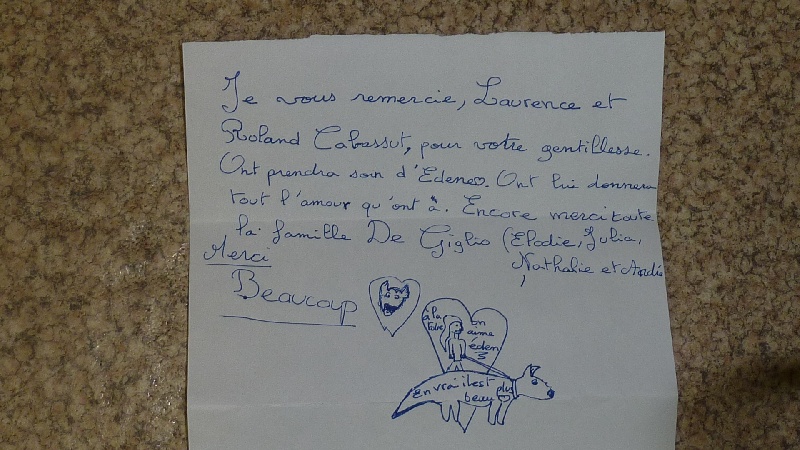 Je vous remercie, Laurence et
Roland Cabassut, pour votre gentillesse.
Ont prendra soin d'Eden. Ont lui donnera
tout l'amour qu'ont à. Encore merci toute
la famille De Giglio (Elodie, Julia,
Nathalie et
Merci
Beaucoup
à la
on
aime
éden
En vrai il est plus
beau